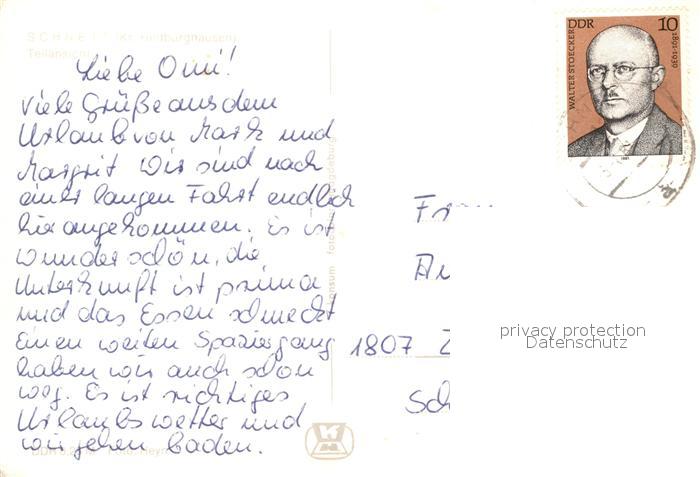 SCHNETT (Kr. Hildburghausen)
Teilansicht
Liebe Omi!
Viele Grüße aus dem
Urlaub von Maik und
Margrit Wir sind nach
einer langen Fahrt endlich
hier angekommen. Es ist
wunderschön, die
Unterkunft ist prima
und das Essen schmeckt
Einen weiten Spaziergang
haben wir auch schon
weg. Es ist richtiges
Urlaubswetter und
wir gehen baden.
WALTER STOECKER
DDR
10
1891-1930
1981
1807
privacy protection
Datenschutz